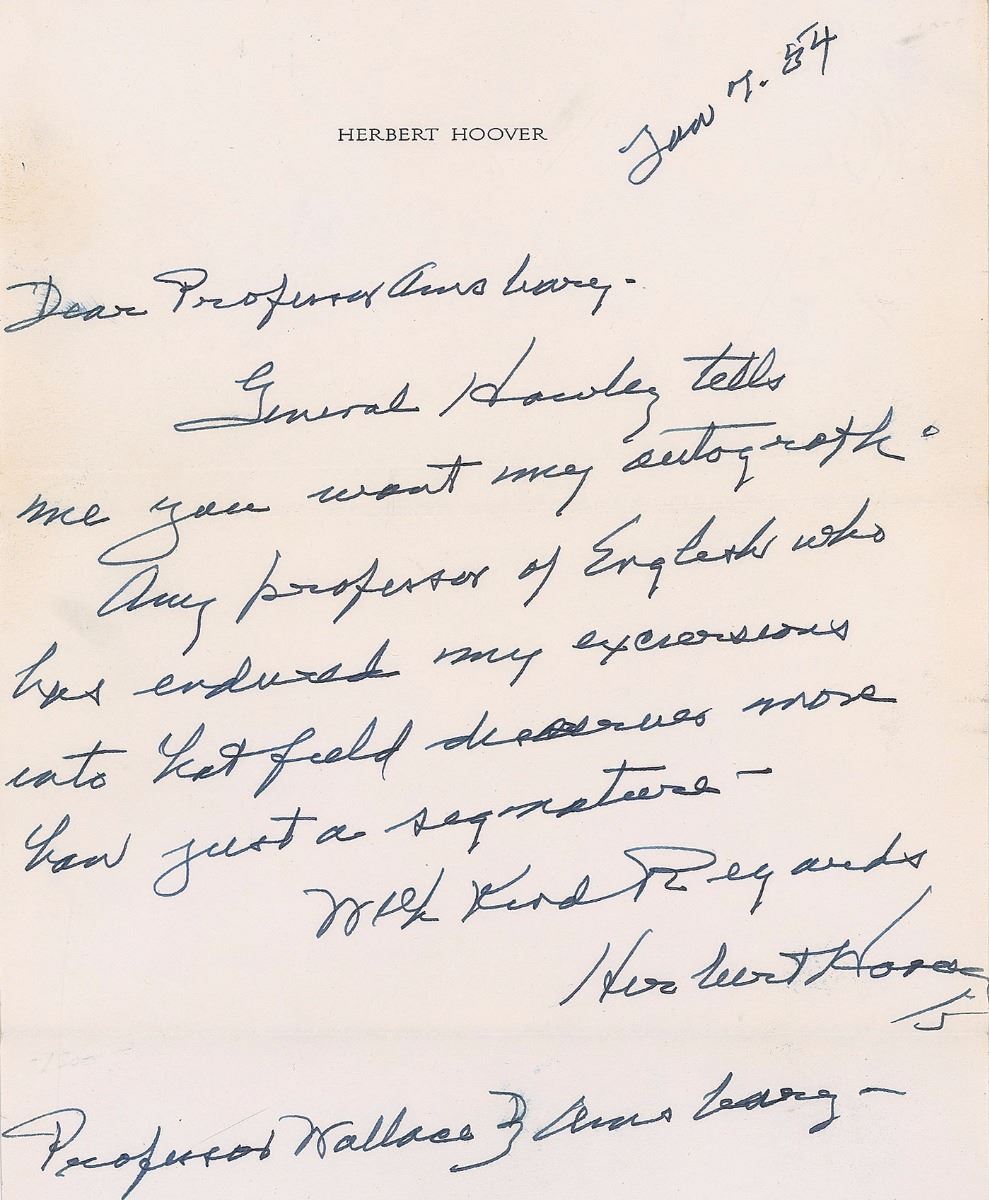 Jan 7. 54
HERBERT HOOVER
Dear Professor Amsbary -
General Howley tells
me you want my autograph.
Any professor of English who
has endured my excursions
into that field deserves more
than just a signature -
With Kind Regards
Herbert Hoover
Professor Wallace B Amsbary -